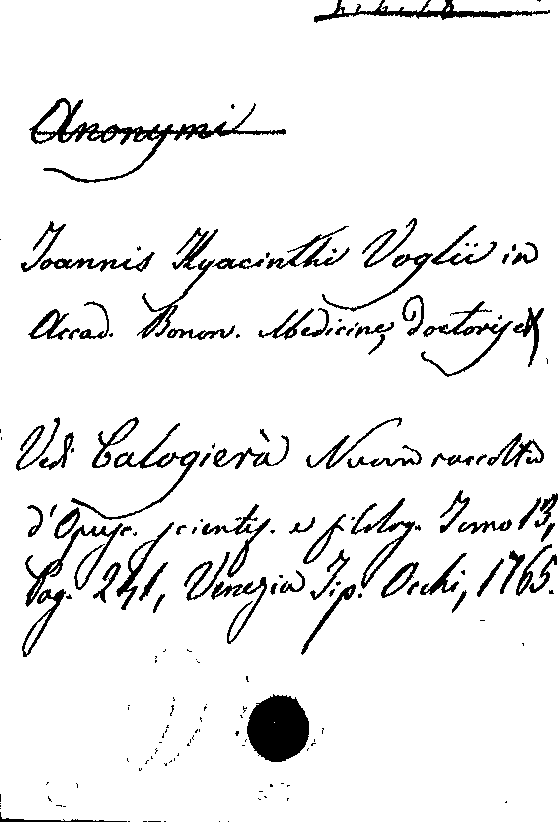 Anonymi
Joannis Hyacinthi Voglii in
Accad. Bonon. Medicine, Doctoris et
Vedi Calogierà Nuova raccolta
d'Opusc. scientif. e filolog. Tomo 13,
Pag. 241, Venezia Tip. Occhi, 1765.